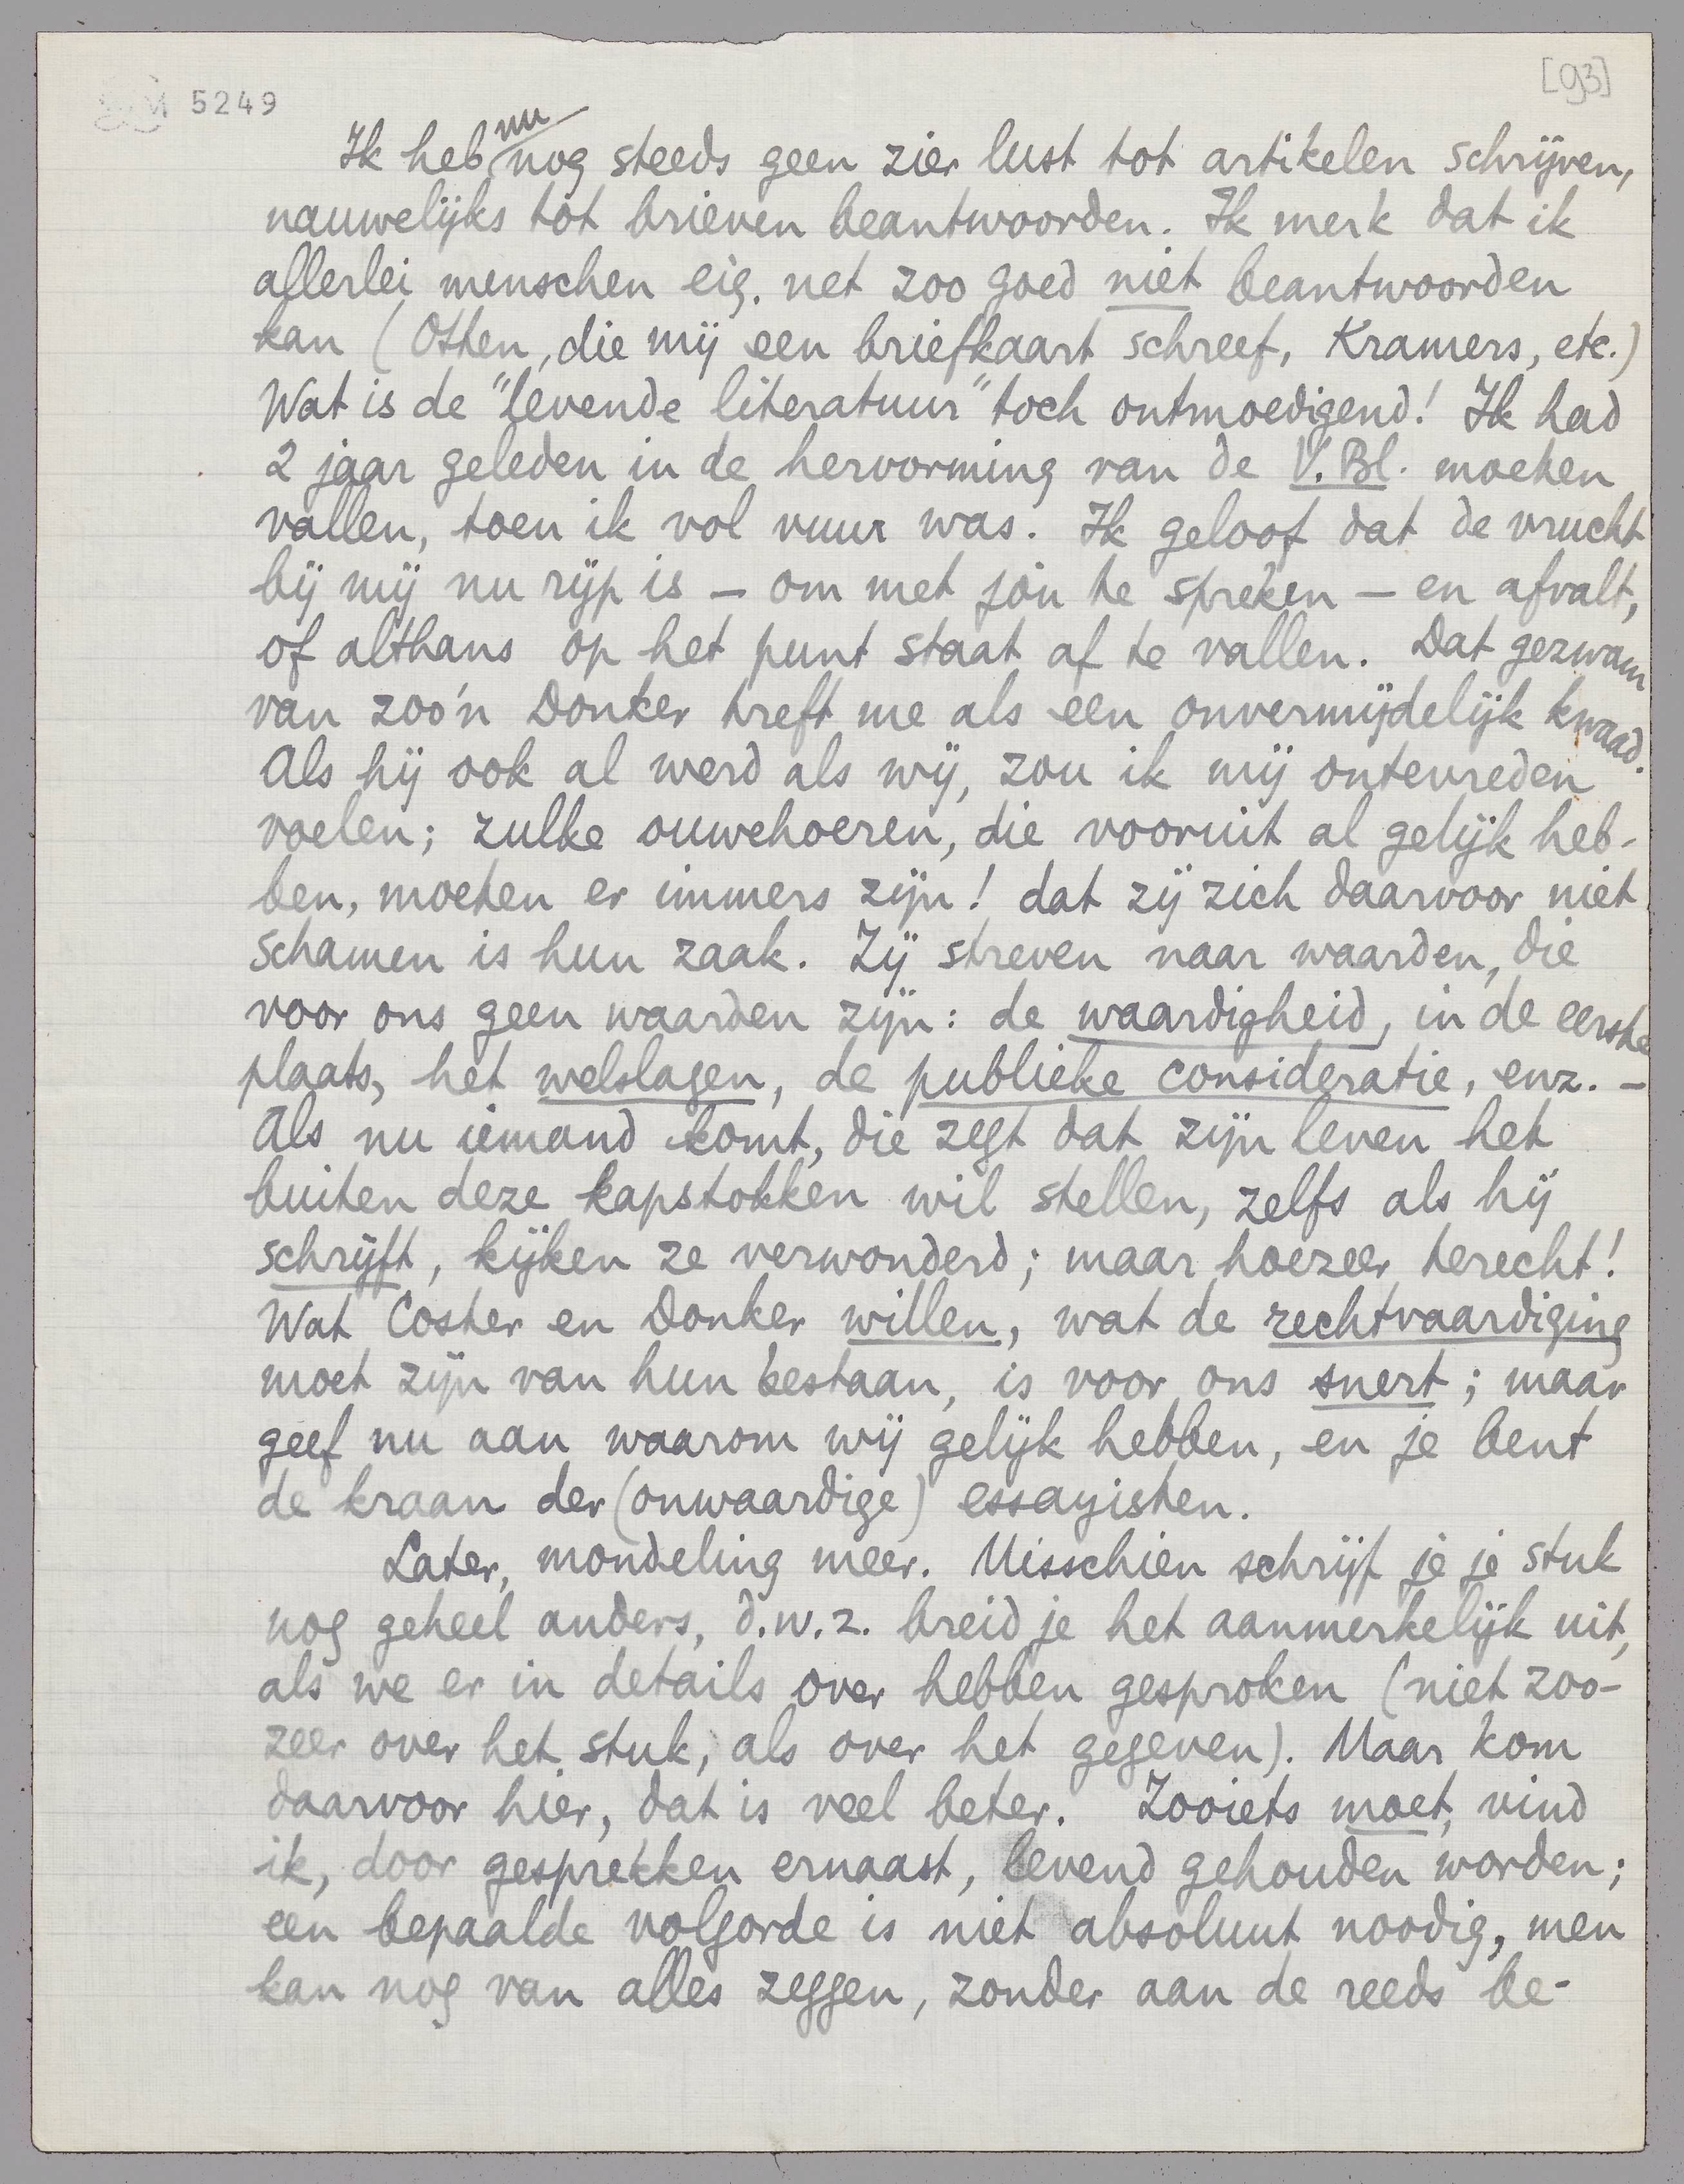 5249
[93]
Ik heb nu nog steeds geen zier lust tot artikelen schrijven,
nauwelijks tot brieven beantwoorden. Ik merk dat ik
allerlei menschen eig. net zoo goed niet beantwoorden
kan (Otten, die mij een briefkaart schreef, Kramers, etc.)
Wat is de "levende literatuur" toch ontmoedigend! Ik had
2 jaar geleden in de hervorming van de V. Bl. moeten
vallen, toen ik vol vuur was. Ik geloof dat de vrucht
bij mij nu rijp is – om met jòu te spreken – en afvalt,
of althans op het punt staat af te vallen. Dat gezwam
van zoo'n Donker treft me als een onvermijdelijk kwaad.
Als hij ook al werd als wij, zou ik mij ontevreden
voelen; zulke ouwehoeren, die vooruit al gelijk heb-
ben, moeten er immers zijn! dat zij zich daarvoor niet
schamen is hun zaak. Zij streven naar waarden, die
voor ons geen waarden zijn: de waardigheid, in de eerste
plaats, het welslagen, de publieke consideratie, enz. –
Als nu iemand komt, die zegt dat zijn leven het
buiten deze kapstokken wil stellen, zelfs als hij
schrijft, kijken ze verwonderd; maar hoezeer terecht!
Wat Coster en Donker willen, wat de rechtvaardiging
moet zijn van hun bestaan, is voor ons snert; maar
geef nu aan waarom wij gelijk hebben, en je bent
de kraan der (onwaardige) essayisten.
Later, mondeling meer. Misschien schrijf je je stuk
nog geheel anders, d.w.z. breid je het aanmerkelijk uit,
als we er in details over hebben gesproken (niet zoo-
zeer over het stuk, als over het gegeven). Maar kom
daarvoor hier, dat is veel beter. Zooiets moet, vind
ik, door gesprekken ernaast, levend gehouden worden;
een bepaalde volgorde is niet absoluut noodig, men
kan nog van alles zeggen, zonder aan de reeds be-